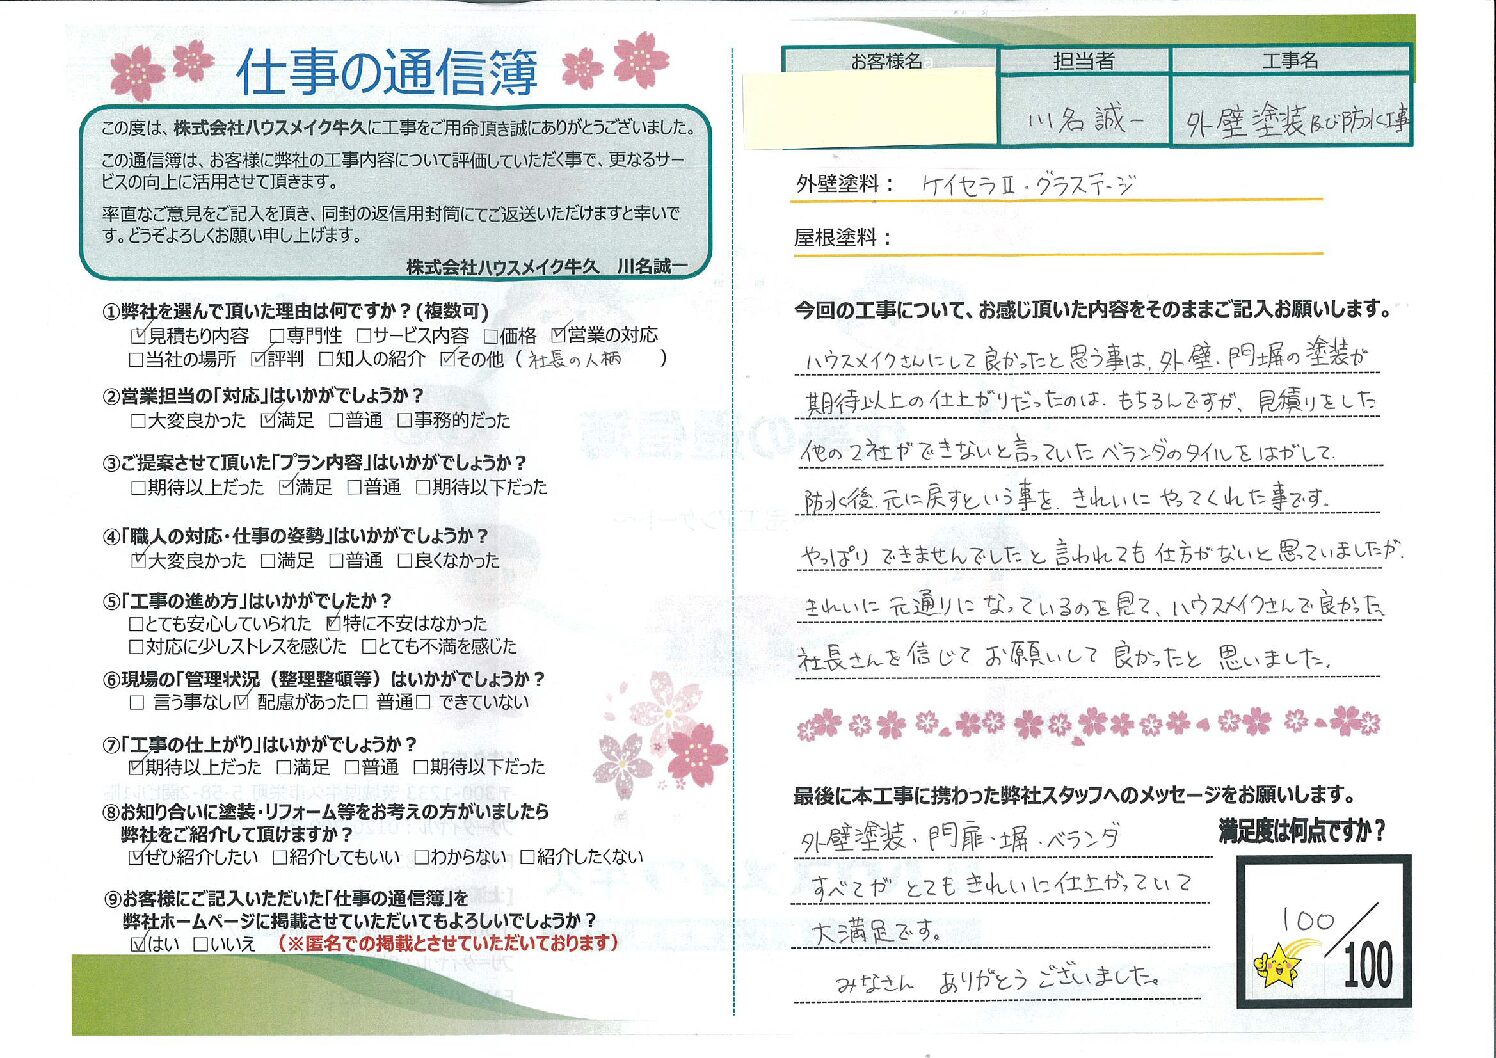 仕事の通信簿
この度は、株式会社ハウスメイク牛久に工事をご用命頂き誠にありがとうございました。
この通信簿は、お客様に弊社の工事内容について評価していただく事で、更なるサー
ビスの向上に活用させて頂きます。
率直なご意見をご記入を頂き、同封の返信用封筒にてご返送いただけますと幸いで
す。どうぞよろしくお願い申し上げます。
株式会社ハウスメイク牛久　川名誠一
①弊社を選んで頂いた理由は何ですか？(複数可)
☑見積もり内容 □専門性 □サービス内容 □価格 ☑営業の対応
□当社の場所 ☑評判 □知人の紹介 ☑その他（社長の人柄　）
②営業担当の｢対応｣はいかがでしょうか？
□大変良かった ☑満足 □普通 □事務的だった
③ご提案させて頂いた｢プラン内容｣はいかがでしょうか？
□期待以上だった ☑満足 □普通 □期待以下だった
④｢職人の対応・仕事の姿勢｣はいかがでしょうか？
☑大変良かった □満足 □普通 □良くなかった
⑤｢工事の進め方｣はいかがでしたか？
□とても安心していられた ☑特に不安はなかった
□対応に少しストレスを感じた □とても不満を感じた
⑥現場の｢管理状況（整理整頓等）はいかがでしょうか？
□ 言う事なし☑ 配慮があった□ 普通□ できていない
⑦｢工事の仕上がり｣はいかがでしょうか？
☑期待以上だった □満足 □普通 □期待以下だった
⑧お知り合いに塗装・リフォーム等をお考えの方がいましたら
弊社をご紹介して頂けますか？
☑ぜひ紹介したい □紹介してもいい □わからない □紹介したくない
⑨お客様にご記入いただいた｢仕事の通信簿｣を
弊社ホームページに掲載させていただいてもよろしいでしょうか？
☑はい □いいえ （※匿名での掲載とさせていただいております）
お客様名 担当者 工事名
川名誠一 外壁塗装及び防水工事
外壁塗料： ケイセラⅡ・グラステージ
屋根塗料：
今回の工事について、お感じ頂いた内容をそのままご記入お願いします。
ハウスメイクさんにして良かったと思う事は、外壁・門塀の塗装が
期待以上の仕上がりだったのは、もちろんですが、見積りをした
他の2社ができないと言っていたベランダのタイルをはがして、
防水後、元に戻すという事を、きれいにやってくれた事です。
やっぱりできませんでしたと言われても仕方がないと思っていましたが、
きれいに元通りになっているのを見て、ハウスメイクさんで良かった、
社長さんを信じてお願いして良かったと思いました。
最後に本工事に携わった弊社スタッフへのメッセージをお願いします。
満足度は何点ですか？
外壁塗装・門扉・塀・ベランダ
すべてがとてもきれいに仕上がっていて
大満足です。
みなさん ありがとうございました。
100/100